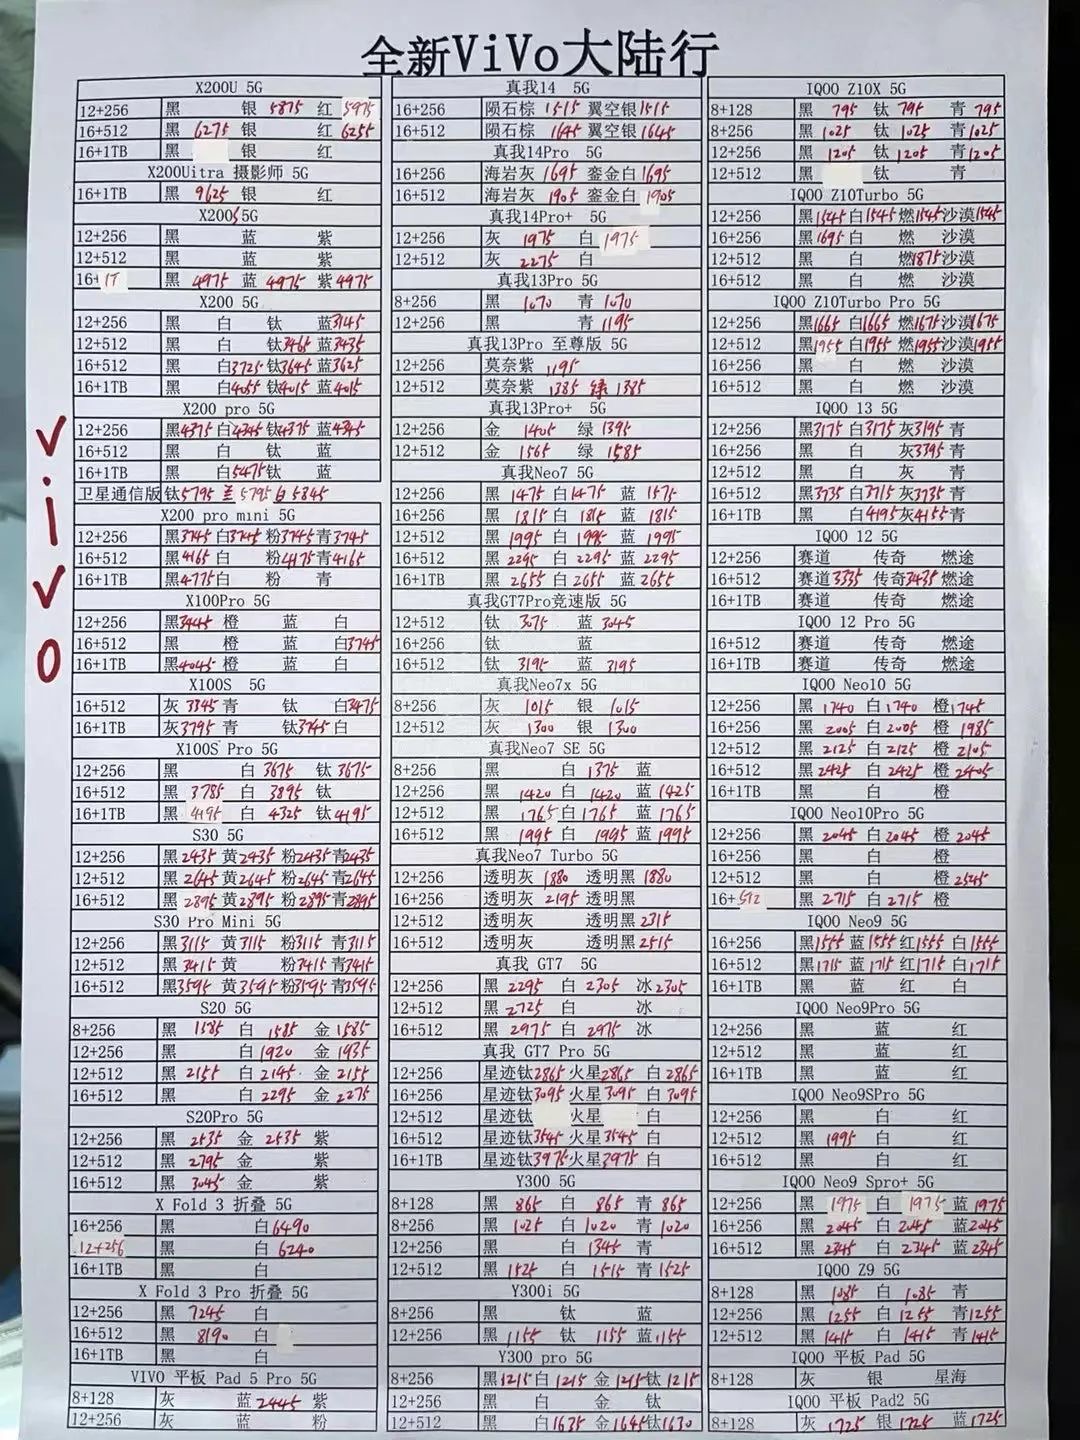 全新ViVo大陆行
ViVO
X200U 5G
12+256 黑 银 5875 红 5975
16+512 黑 6275 银 红 6255
16+1TB 黑 银 红
X200Uitra 摄影师 5G
16+1TB 黑 9625 银 红
X200S 5G
12+256 黑 蓝 紫
12+512 黑 蓝 紫
16+1T 黑 4975 蓝 4975 紫 4975
X200 5G
12+256 黑 白 钛 蓝3145
12+512 黑 白 钛3465 蓝3435
16+256 黑 白3725 钛3645 蓝3625
16+1TB 黑 白4055 钛4015 蓝4015
X200 pro 5G
12+256 黑4375 白4345 钛4375 蓝4345
16+512 黑 白 钛 蓝
16+1TB 黑 白5475 钛 蓝
卫星通信版 钛5795 兰 5795 白 5845
X200 pro mini 5G
12+256 黑3745 白3745 粉3745 青3745
16+512 黑4165 白 粉4175 青4165
16+1TB 黑4775 白 粉 青
X100Pro 5G
12+256 黑3445 橙 蓝 白
16+512 黑 橙 蓝 白3745
16+1TB 黑4045 橙 蓝 白
X100S 5G
16+512 灰 3345 青 钛 白3475
16+1TB 灰3795 青 钛3745 白
X100S Pro 5G
12+256 黑 白 3675 钛 3675
16+512 黑 3785 白 3895 钛
16+1TB 黑 4195 白 4325 钛4195
S30 5G
12+256 黑 2435 黄2435 粉2435 青2435
12+512 黑 2645 黄2645 粉2645 青2645
16+512 黑 2895 黄2895 粉2895 青2895
S30 Pro Mini 5G
12+256 黑3115 黄 3115 粉3115 青3115
12+512 黑 3415 黄 粉3415 青3415
16+512 黑3595 黄3595 粉3595 青3595
S20 5G
8+256 黑 1585 白 1585 金 1585
12+256 黑 白1920 金 1935
12+512 黑 2155 白 2145 金 2155
16+512 黑 白 2295 金 2275
S20Pro 5G
12+256 黑 2535 金 2535 紫
12+512 黑 2795 金 紫
16+512 黑 3045 金 紫
X Fold 3 折叠 5G
16+256 黑 白6490
12+256 黑 白 6240
16+1TB 黑 白
X Fold 3 Pro 折叠 5G
12+256 黑 7245 白
16+512 黑 8190 白
16+1TB 黑 白
VIVO 平板 Pad 5 Pro 5G
8+128 灰 蓝 2445 紫
12+256 灰 蓝 粉
真我14 5G
16+256 陨石棕 1515 翼空银1515
16+512 陨石棕 1645 翼空银1645
真我14Pro 5G
16+256 海岩灰 1695 銮金白 1695
16+512 海岩灰 1905 銮金白 1905
真我14Pro+ 5G
12+256 灰 1975 白 1975
12+512 灰 2275 白
真我13Pro 5G
8+256 黑 1070 青 1070
12+256 黑 青 1195
真我13Pro 至尊版 5G
12+256 莫奈紫 1195
12+512 莫奈紫 1385 绿 1385
真我13Pro+ 5G
12+256 金 1405 绿 1395
12+512 金 1565 绿 1585
真我Neo7 5G
12+256 黑 1475 白1475 蓝 1575
16+256 黑 1815 白 1815 蓝 1815
12+512 黑 1995 白 1995 蓝 1995
16+512 黑 2295 白 2295 蓝 2295
16+1TB 黑 2655 白 2655 蓝 2655
真我GT7Pro竞速版 5G
12+512 钛 3075 蓝 3045
16+256 钛 蓝
16+512 钛 3195 蓝 3195
真我Neo7x 5G
8+256 灰 1015 银 1015
12+512 灰 1300 银 1300
真我Neo7 SE 5G
8+256 黑 白 1375 蓝
12+256 黑 1420 白 1420 蓝 1425
12+512 黑 1765 白1765 蓝 1765
16+512 黑 1995 白 1995 蓝 1995
真我Neo7 Turbo 5G
12+256 透明灰 1880 透明黑 1880
16+256 透明灰 2195 透明黑
12+512 透明灰 透明黑 2315
16+512 透明灰 透明黑 2515
真我 GT7 5G
12+256 黑 2295 白 2305 冰2305
12+512 黑 2725 白 冰
16+512 黑 2975 白 2975 冰
真我 GT7 Pro 5G
12+256 星迹钛2865 火星2865 白 2865
16+256 星迹钛3095 火星3095 白 3095
12+512 星迹钛 火星 白
16+512 星迹钛3545 火星3545 白
16+1TB 星迹钛3975 火星3975 白
Y300 5G
8+128 黑 865 白 865 青 865
8+256 黑 1025 白 1020 青 1020
12+256 黑 白 1345 青
12+512 黑 1525 白 1515 青 1525
Y300i 5G
8+256 黑 钛 蓝
12+256 黑 1155 钛 1155 蓝1155
Y300 pro 5G
8+256 黑1215 白 1215 金 1215 钛 1215
12+256 黑 白 金 钛
12+512 黑 白1635 金 1645 钛1630
IQOO Z10X 5G
8+128 黑 795 钛 795 青 795
8+256 黑 1025 钛 1025 青1025
12+256 黑 1205 钛 1205 青1205
12+512 黑 钛 青
IQOO Z10Turbo 5G
12+256 黑1545 白1545 燃1545 沙漠1545
16+256 黑1695 白 燃 沙漠
12+512 黑 白 燃1875 沙漠
16+512 黑 白 燃 沙漠
IQOO Z10Turbo Pro 5G
12+256 黑1665 白1665 燃1675 沙漠1675
12+512 黑1955 白1955 燃1955 沙漠1955
16+256 黑 白 燃 沙漠
16+512 黑 白 燃 沙漠
IQOO 13 5G
12+256 黑3175 白3175 灰3195 青
16+256 黑 白 灰3395 青
12+512 黑 白 灰 青
16+512 黑3735 白3715 灰3735 青
16+1TB 黑 白4195 灰4155 青
IQOO 12 5G
12+256 赛道 传奇 燃途
16+512 赛道3335 传奇3435 燃途
16+1TB 赛道 传奇 燃途
IQOO 12 Pro 5G
16+512 赛道 传奇 燃途
16+1TB 赛道 传奇 燃途
IQOO Neo10 5G
12+256 黑 1740 白1740 橙1745
16+256 黑 2005 白 2005 橙 1985
12+512 黑 2125 白 2125 橙 2105
16+512 黑 2425 白 2425 橙 2405
16+1TB 黑 白 橙
IQOO Neo10Pro 5G
12+256 黑 2045 白 2045 橙 2045
16+256 黑 白 橙
12+512 黑 白 橙 2545
16+512 黑 2715 白 2715 橙
IQOO Neo9 5G
16+256 黑1555 蓝1555 红1555 白1555
16+512 黑1715 蓝1715 红1715 白1715
16+1TB 黑 蓝 红 白
IQOO Neo9Pro 5G
12+256 黑 蓝 红
12+512 黑 蓝 红
16+1TB 黑 蓝 红
IQOO Neo9SPro 5G
12+256 黑 白 红
12+512 黑 1995 白 红
16+512 黑 白 红
IQOO Neo9 Spro+ 5G
12+256 黑 1975 白 1975 蓝 1975
16+256 黑 2045 白 2045 蓝2045
16+512 黑 2345 白 2345 蓝2345
IQOO Z9 5G
8+128 黑 1085 白 1085 青
12+256 黑 1255 白 1255 青1255
12+512 黑 1415 白 1415 青1415
IQOO 平板 Pad 5G
8+128 灰 银 星海
IQOO 平板 Pad2 5G
8+128 灰 1725 银 1725 蓝1725